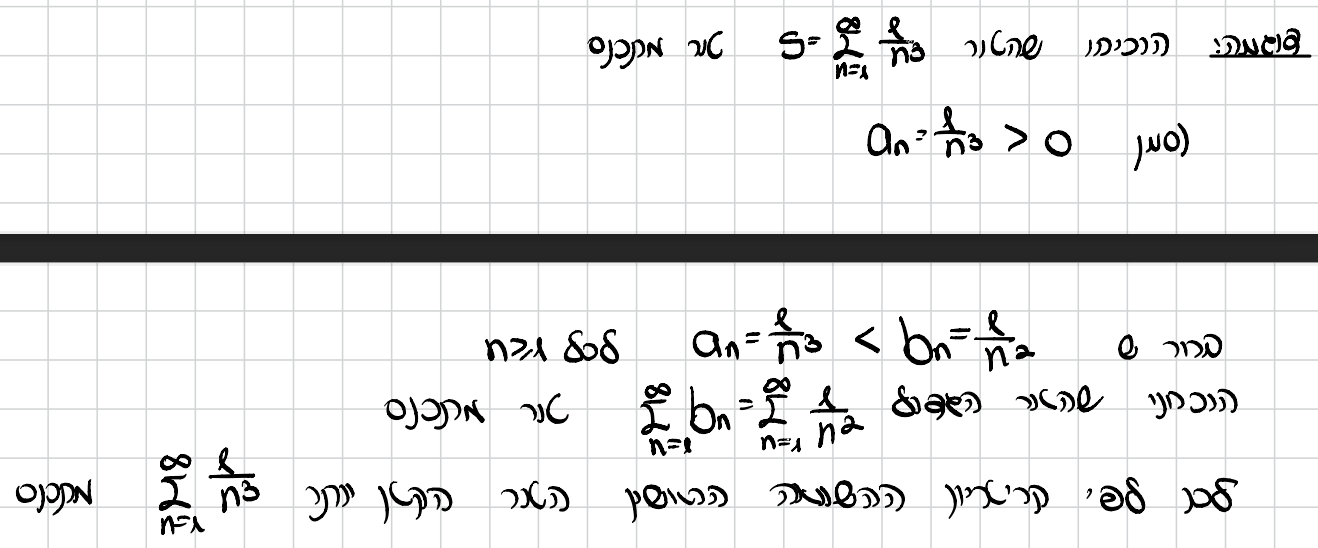 דוגמה: הוכיחו שהטור S = \sum_{n=1}^{\infty} \frac{1}{n^3} טור מתכנס
נסמן a_n = \frac{1}{n^3} > 0
ברור ש a_n = \frac{1}{n^3} < b_n = \frac{1}{n^2} לכל n \geq 1
הוכחנו שהטור הגדול \sum_{n=1}^{\infty} b_n = \sum_{n=1}^{\infty} \frac{1}{n^2} טור מתכנס
לכן לפי קריטריון ההשוואה הראשון הטור הקטן יותר \sum_{n=1}^{\infty} \frac{1}{n^3} מתכנס